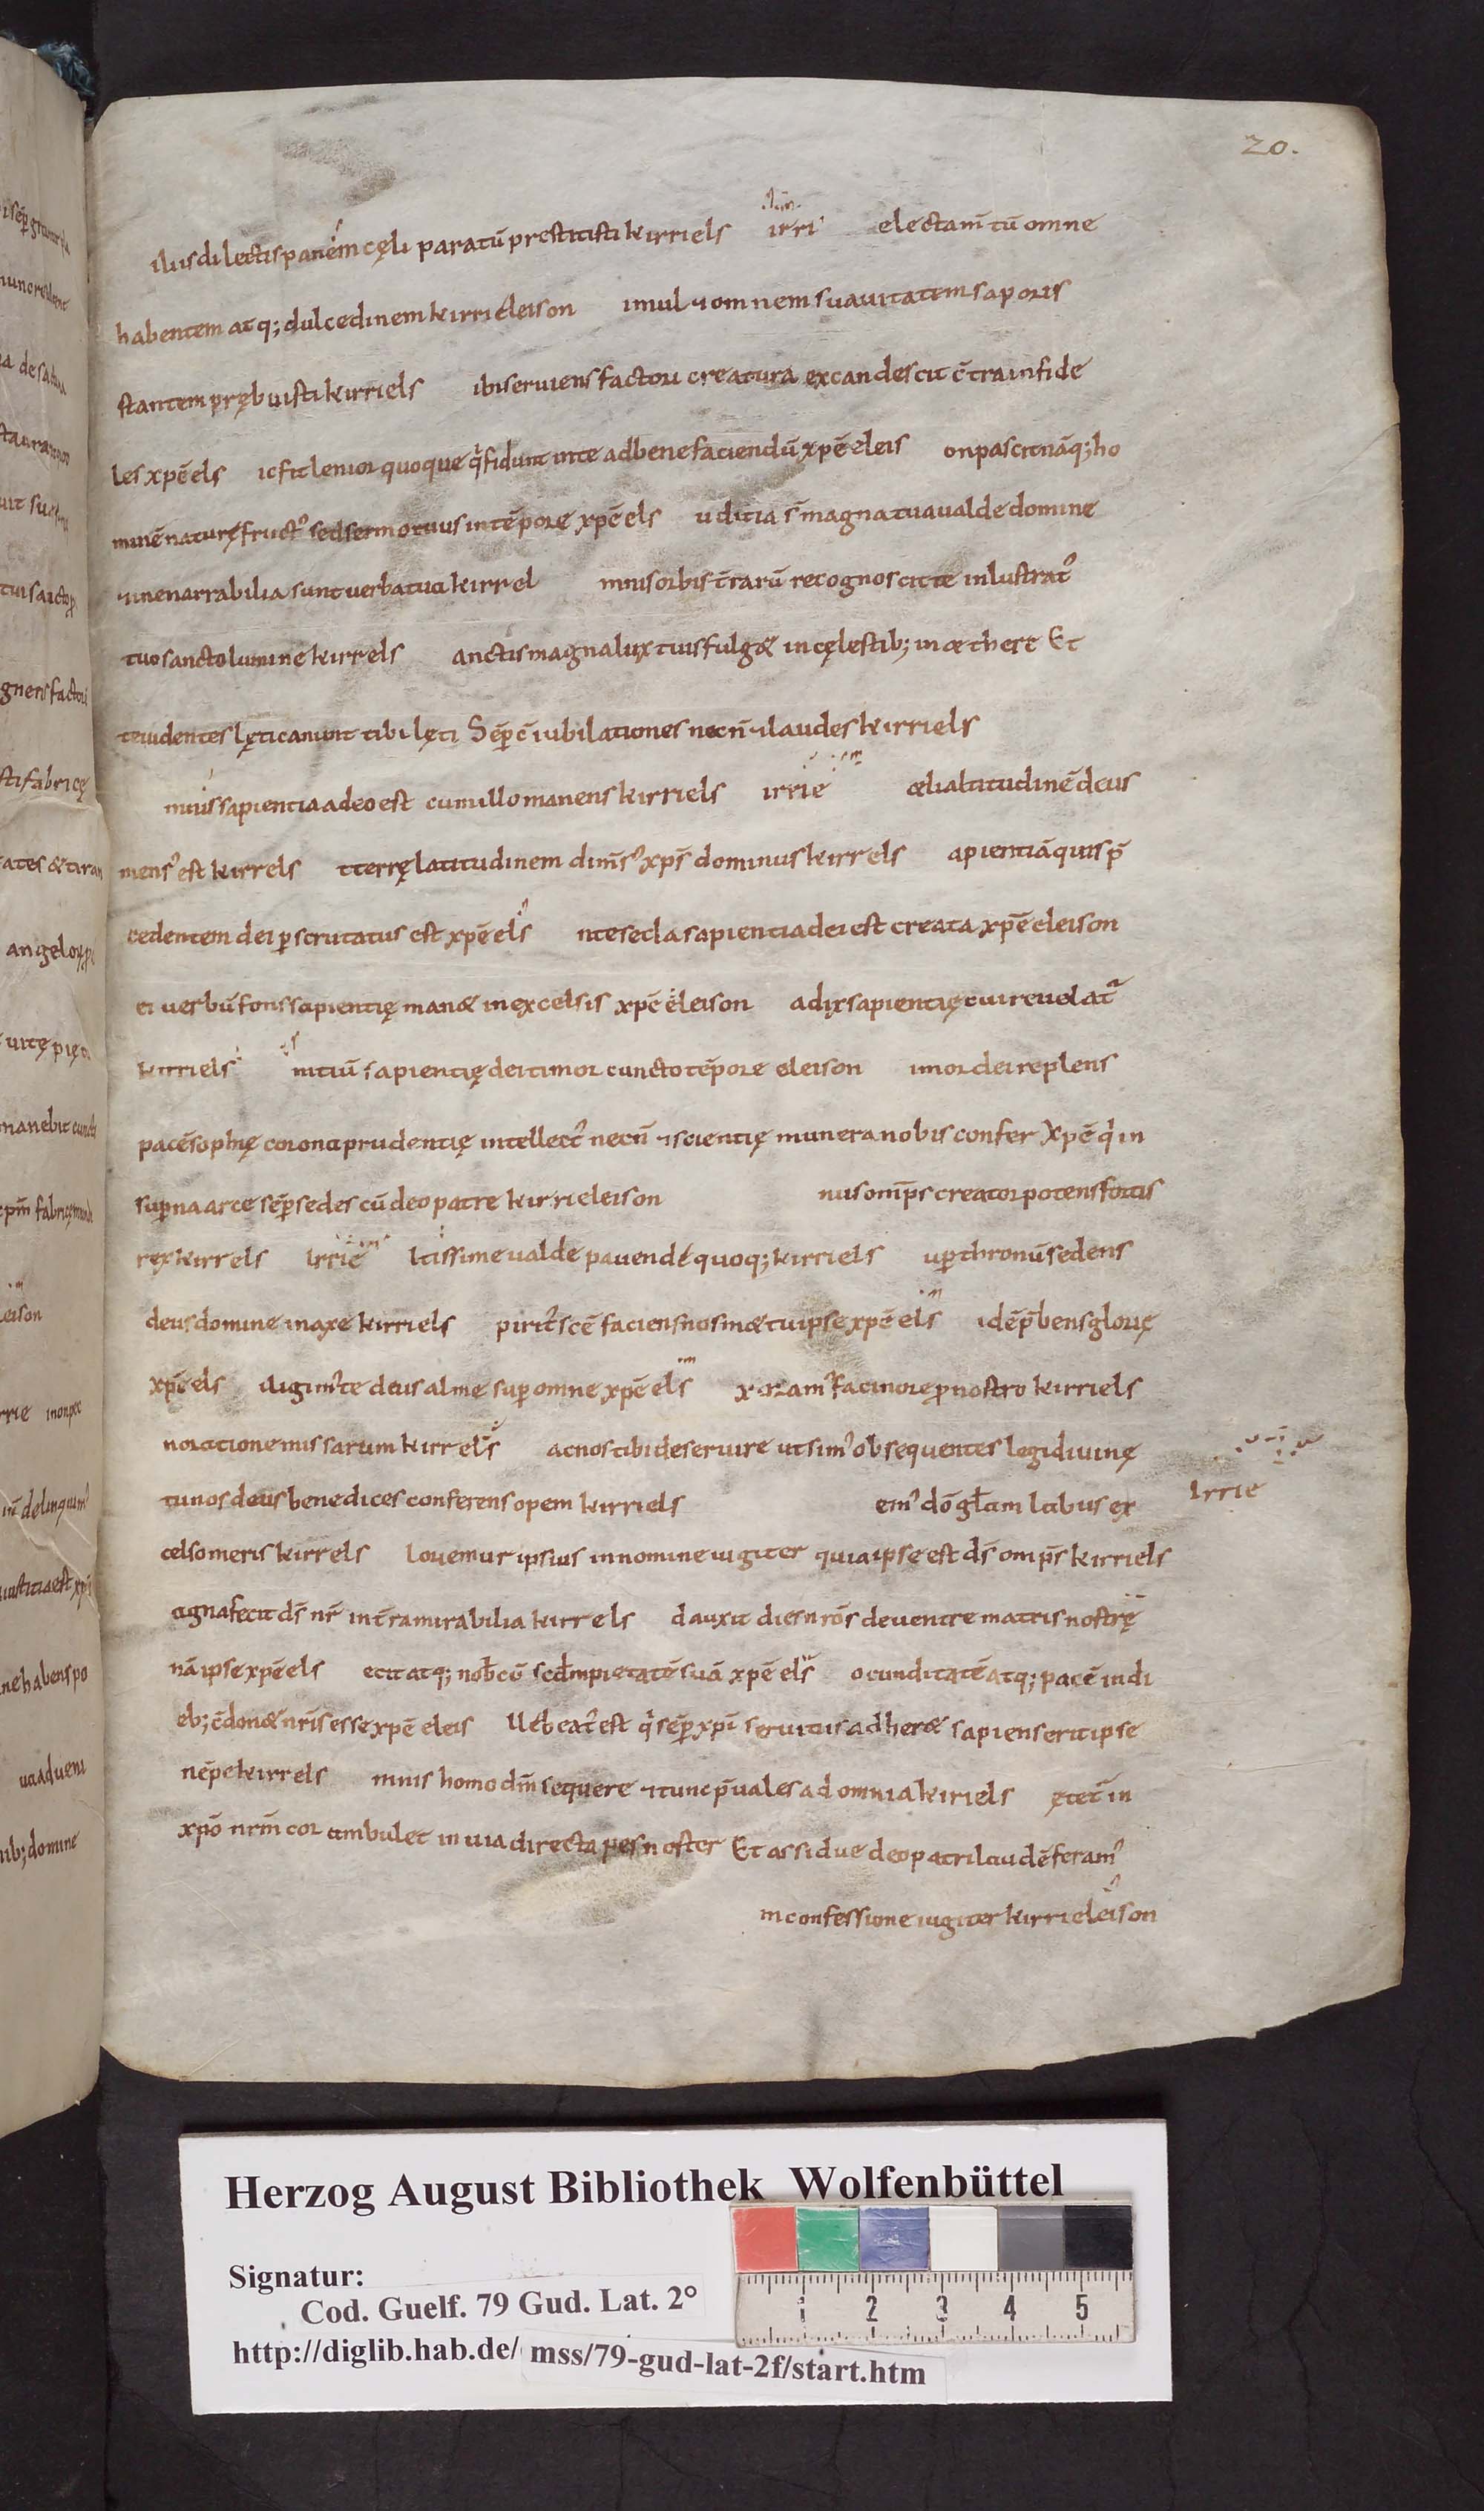 20.
iliis dilectis panem cęli paratū prestitisti kirriels irri electam tū omne
habentem atq; dulcedinem kirrieleison imul & omnem suavitatem saporis
stantem prębuisti kirriels ibi serviens factori creatura excandescit c̄tra infide
les xpē els ic fit lenior quoque q̓ fidunt in te ad benefaciendū xpē eleis on pascit nāq; ho
minē naturę fruct᾽ sed sermo tuus in tēpore xpē els uditia s̄ magna tua valde domine
& inenarrabilia sunt verba tua kirrel mnis orbis t̄rarū recognoscit te inlustrat᾽
tuo sancto lumine kirrels anctis magna lux tuis fulg& in cęlestib; in æthere Et
te videntes lęti canunt tibi lęti Sēp c̄ iubilationes necn̄ & laudes kirriels
mnis sapientia a deo est cum illo manens kirriels irrie æli altitudinē deus
mens᾽ est kirrels t terrę latitudinem dim̄s᾽ xp̄s dominus kirrels apientiā quis p̄
cedentem dei pscrutatus est xpē els nte secla sapientia dei est creata xpē eleison
ei verbū fons sapientię man& in excelsis xpē eleison adix sapientię cui revelat᾽
kirriels nitiū sapientię dei timor cuncto tēpore eleison imor dei replens
pacē sophię corona prudentię intellect᾽ necn̄ & scientię munera nobis confer Xpē q̓ in
supna arce sēp sedes cū deo patre kirrieleison nus om̄ps creator potens fortis
rex kirrels Irrie ltissime valde pavende quoq; kirriels up thronū sedens
deus domine in axe kirriels pirit᾽ scē faciens nos m& tu ipse xpē els idē p̄bens glorię
xpē els iligim᾽ te deus alme sup omne xpē els xoram᾽ facinore p nostro kirriels
n oratione missarum kirrels ac nos tibi deservire ut sim᾽ obsequentes legi divinę
tu nos deus benedices conferens opem kirriels em᾽ dō gl̄am labus ex
Irrie
celso meris kirrels lovemur ipsius in nomine iugiter quia ipse est ds̄ om̄ps kirriels
agna fecit ds̄ nr̄ in t̄ra mirabilia kirrels dauxit dies nrōs de ventre matris nostrę
nā ipse xpē els ecit atq; nob̄cū scd̄m pietatē suā xpē els ocunditatē atq; pacē in di
eb; c̄don& nrīs esse xpē eleis Ue beat᾽ est q̓ sēp xpī servitiis adher& sapiens erit ipse
nēpe kirrels mnis homo dm̄ sequere & tunc p̄vales ad omnia kiriels ętet᾽ in
xpō nrm̄ cor ambulet in via directa pes noster Et assidue deo patri laudē feram᾽
in confessione iugiter kirrieleison
Herzog August Bibliothek Wolfenbüttel
Signatur:
Cod. Guelf. 79 Gud. Lat. 2°
http://diglib.hab.de/ mss/79-gud-lat-2f/start.htm
1 2 3 4 5